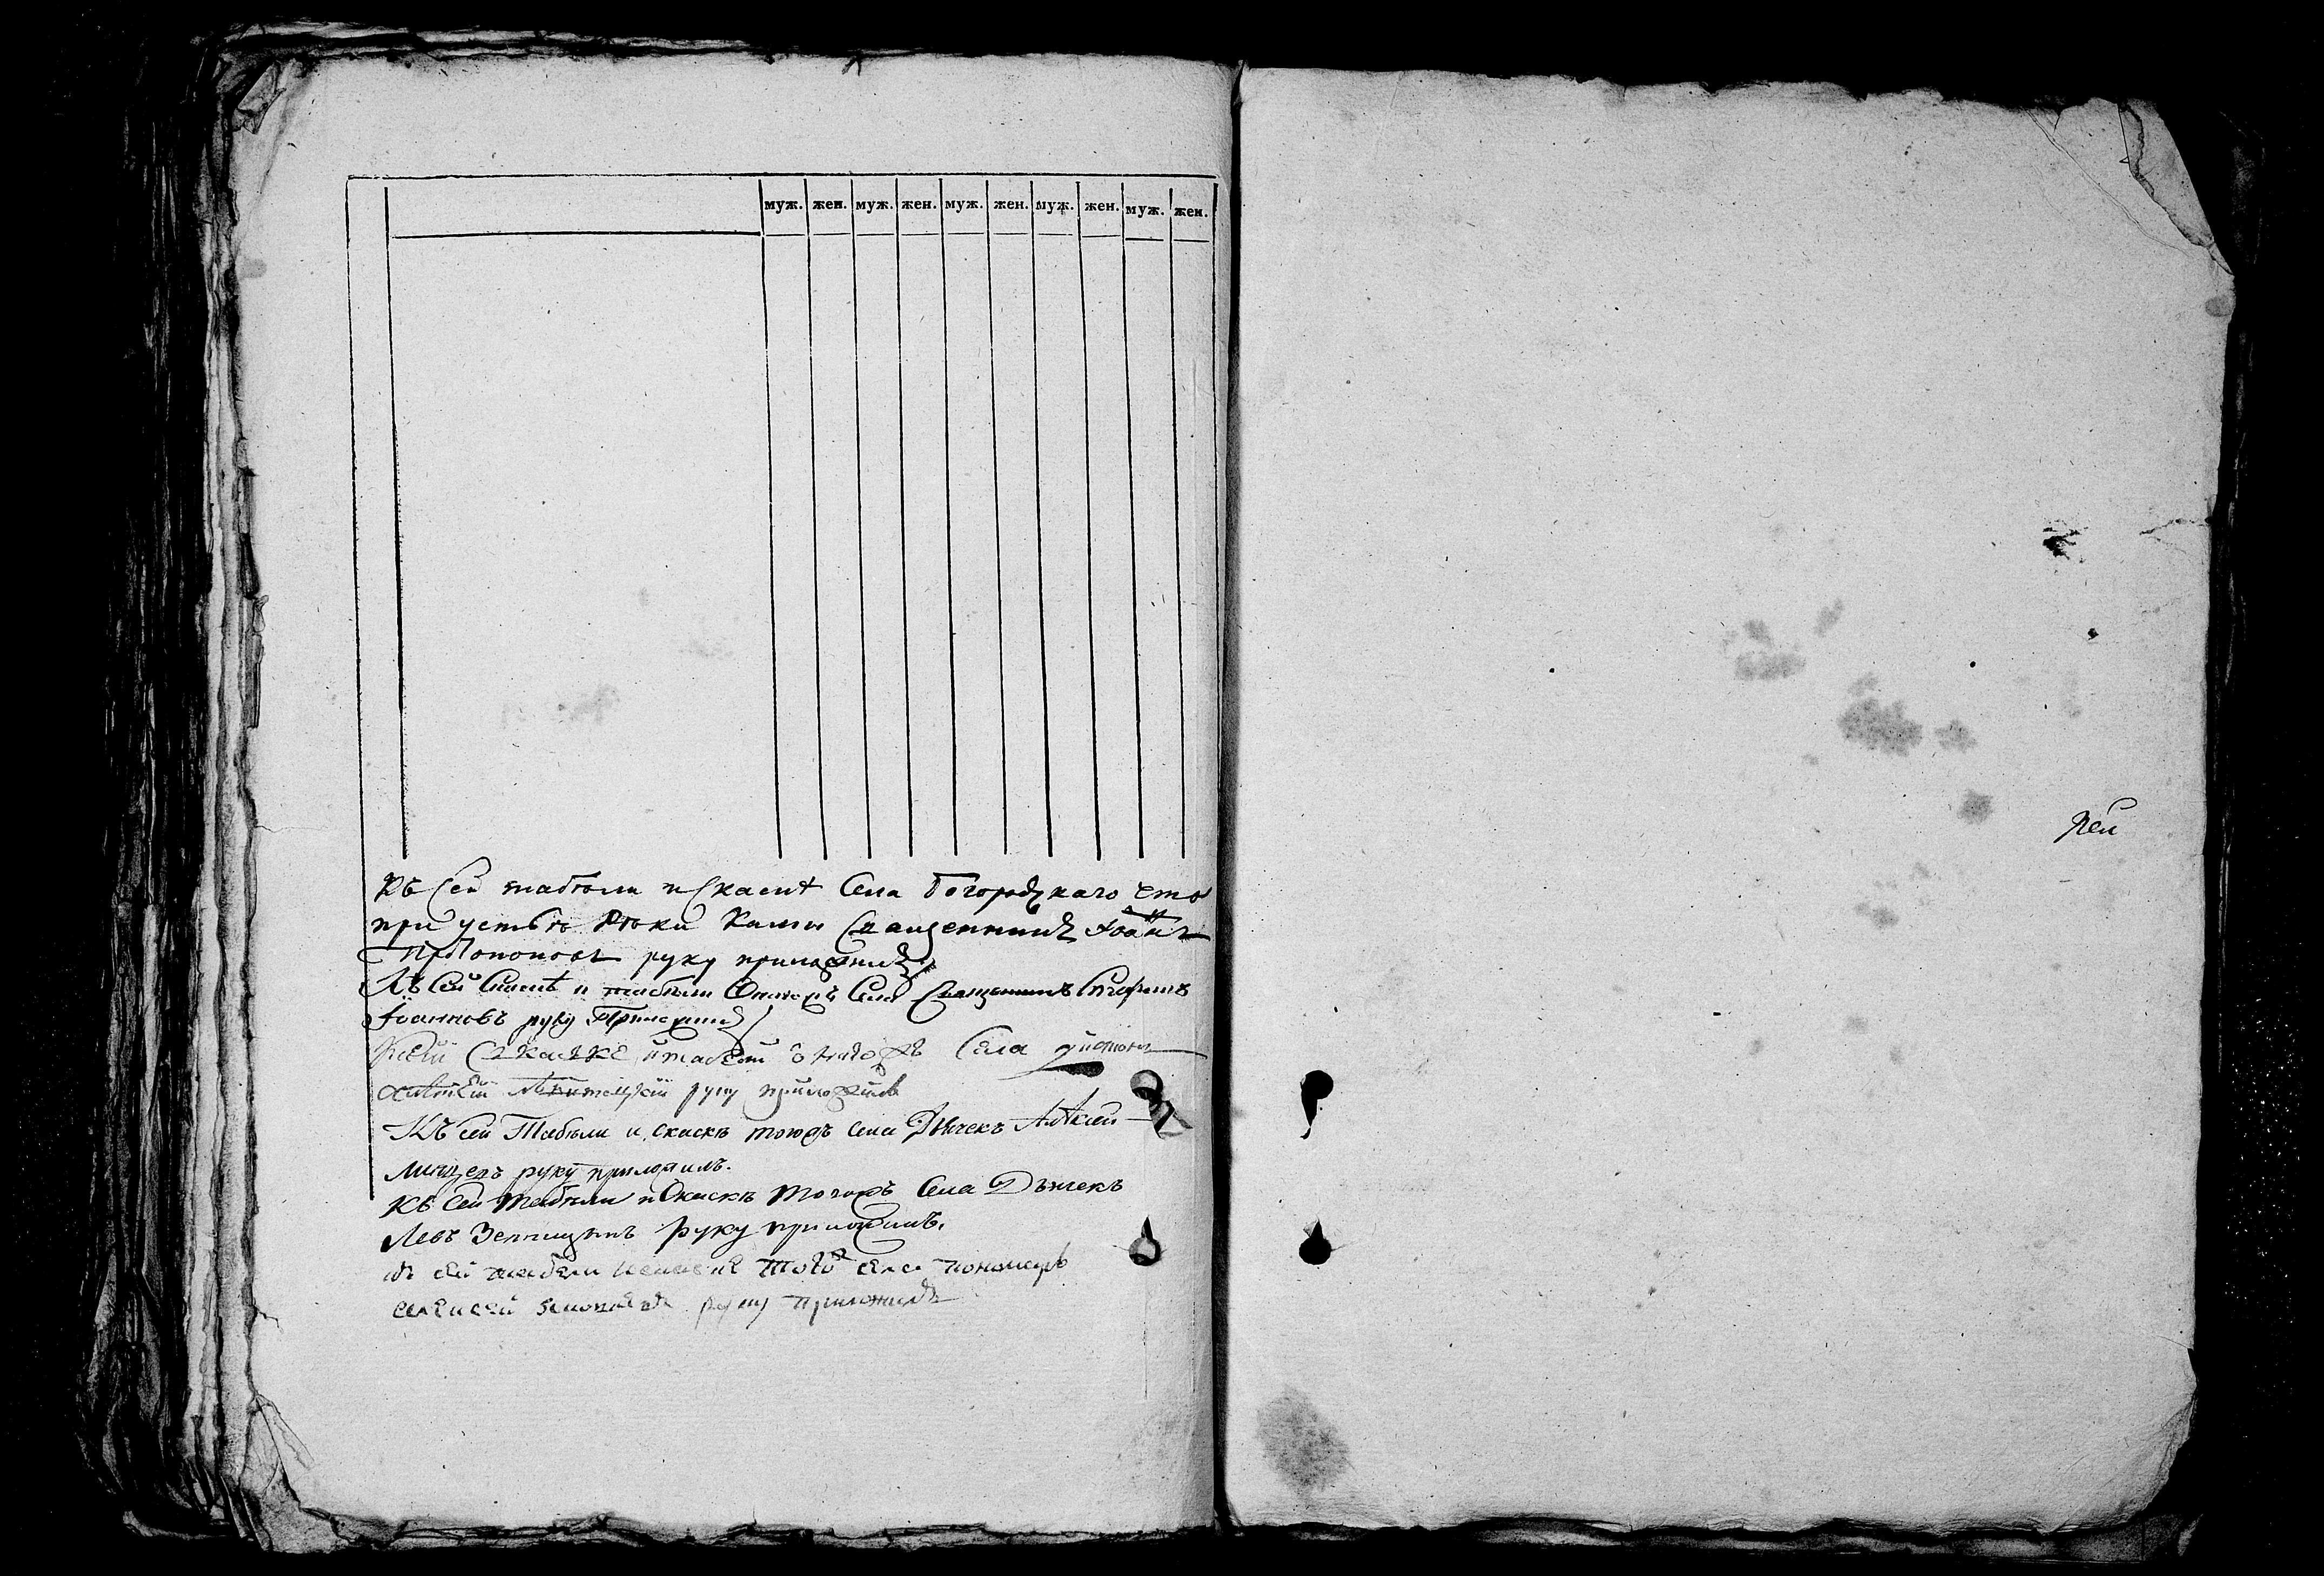 муж. жен. муж. жен. муж. жен. муж. жен. муж. жен.
Къ сей табѣли и скаскѣ села Богородскаго что
при устьѣ рѣки Камы священникъ Іоаннъ
Протопоповъ руку приложилъ
Къ сей скаскѣ и табѣли онагожъ села священникъ
Іоанновъ руку приложилъ
скаске и табели онагожъ села дьяконъ
руку приложилъ
Къ сей табѣли и скаскѣ тогожъ села дьячекъ Алѣксѣй
руку приложилъ.
Къ сей табѣли и скаскѣ тогожъ села дьячекъ
Левъ руку приложилъ.
къ сей табели и скаске того жъ села пономарь
руку приложилъ